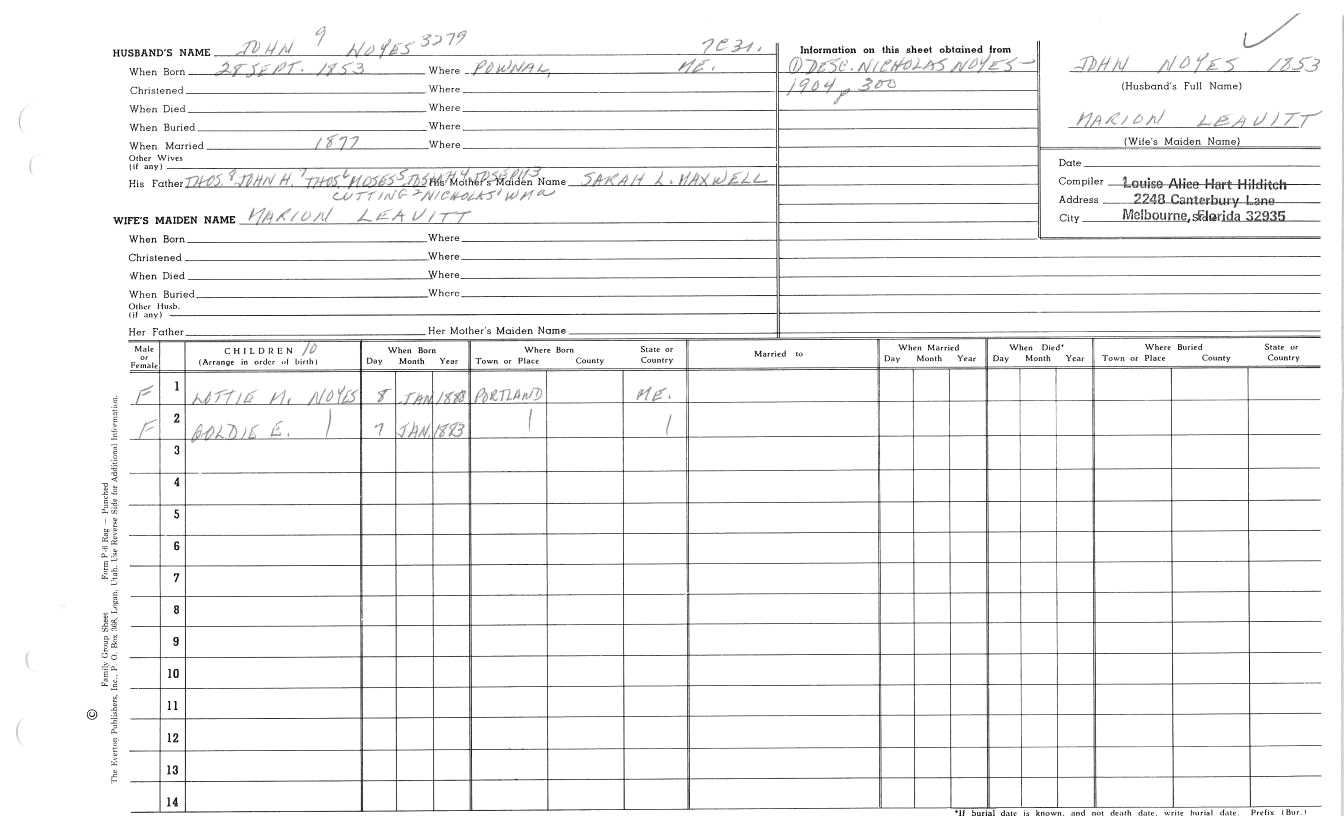 HUSBAND'S NAME JOHN 9 NOYES 3279
When Born 28 SEPT. 1853 Where POWNAL, ME.
Christened Where
When Died Where
When Buried Where
When Married 1877 Where
Other Wives
(if any)
His Father THOS.8 JOHN H.7 THOS6 MOSES5 His Mother's Maiden Name SARAH L. MAXWELL
CUTTING2 NICHOLAS1 WMa
WIFE'S MAIDEN NAME MARION LEAVITT
When Born Where
Christened Where
When Died Where
When Buried Where
Other Husb.
(if any)
Her Father Her Mother's Maiden Name
Information on this sheet obtained from
① DESC. NICHOLAS NOYES -
1904 p 300
JOHN NOYES 1853
(Husband's Full Name)
MARION LEAVITT
(Wife's Maiden Name)
Date
Compiler Louise Alice Hart Hilditch
Address 2248 Canterbury Lane
City Melbourne, Florida 32935
Male or Female CHILDREN 10 (Arrange in order of birth) When Born Day Month Year Where Born Town or Place County State or Country Married to When Married Day Month Year When Died* Day Month Year Where Buried Town or Place County State or Country
F 1 LOTTIE M. NOYES 8 JAN. PORTLAND ME.
F 2 GOLDIE E. | 7 JAN. 1883 | |
3
4
5
6
7
8
9
10
11
12
13
14
*If burial date is known, and not death date, write burial date. Prefix (Bur.)
© Family Group Sheet Form P-8 Rag — Punched
The Everton Publishers, Inc., P. O. Box 368, Logan, Utah. Use Reverse Side for Additional Information.